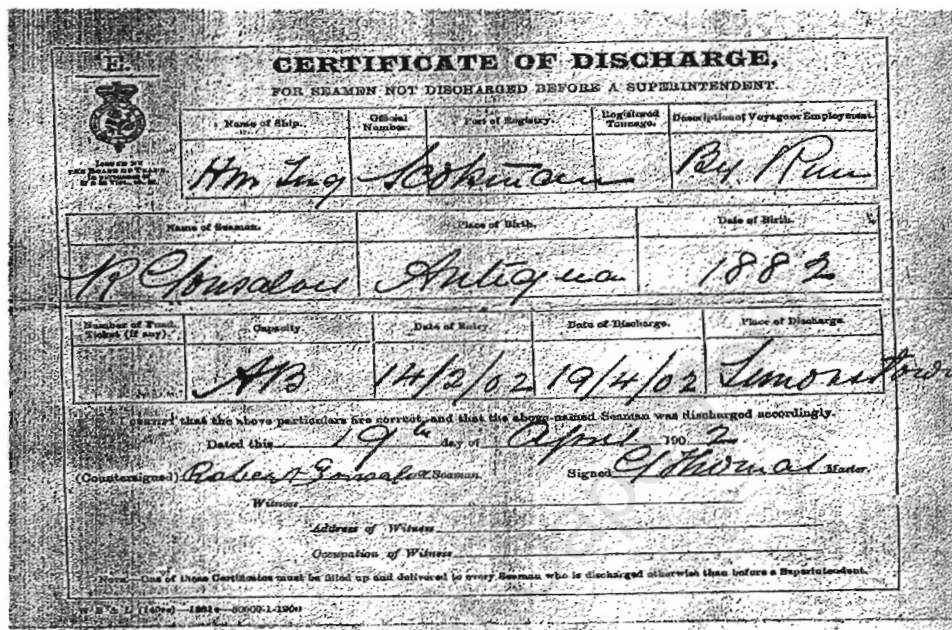 CERTIFICATE OF DISCHARGE,
FOR SEAMEN NOT DISCHARGED BEFORE A SUPERINTENDENT.
ISSUED BY
THE BOARD OF TRADE,
Name of Ship. Official Number. Port of Registry. Registered Tonnage. Description of Voyage or Employment.
HM Tug By Run
Name of Seaman. Place of Birth. Date of Birth.
R Antigua 1882
Number of Fund Ticket (if any). Capacity. Date of Entry. Date of Discharge. Place of Discharge.
AB 14/2/02 19/4/02 Simonstown
that the above particulars are correct, and that the above-named Seaman was discharged accordingly.
Dated this 19th day of April 1902
(Countersigned) Robert Seaman. Signed Thomas Master.
Witness
Address of Witness
Occupation of Witness
Note. One of these Certificates must be filled up and delivered to every Seaman who is discharged otherwise than before a Superintendent.